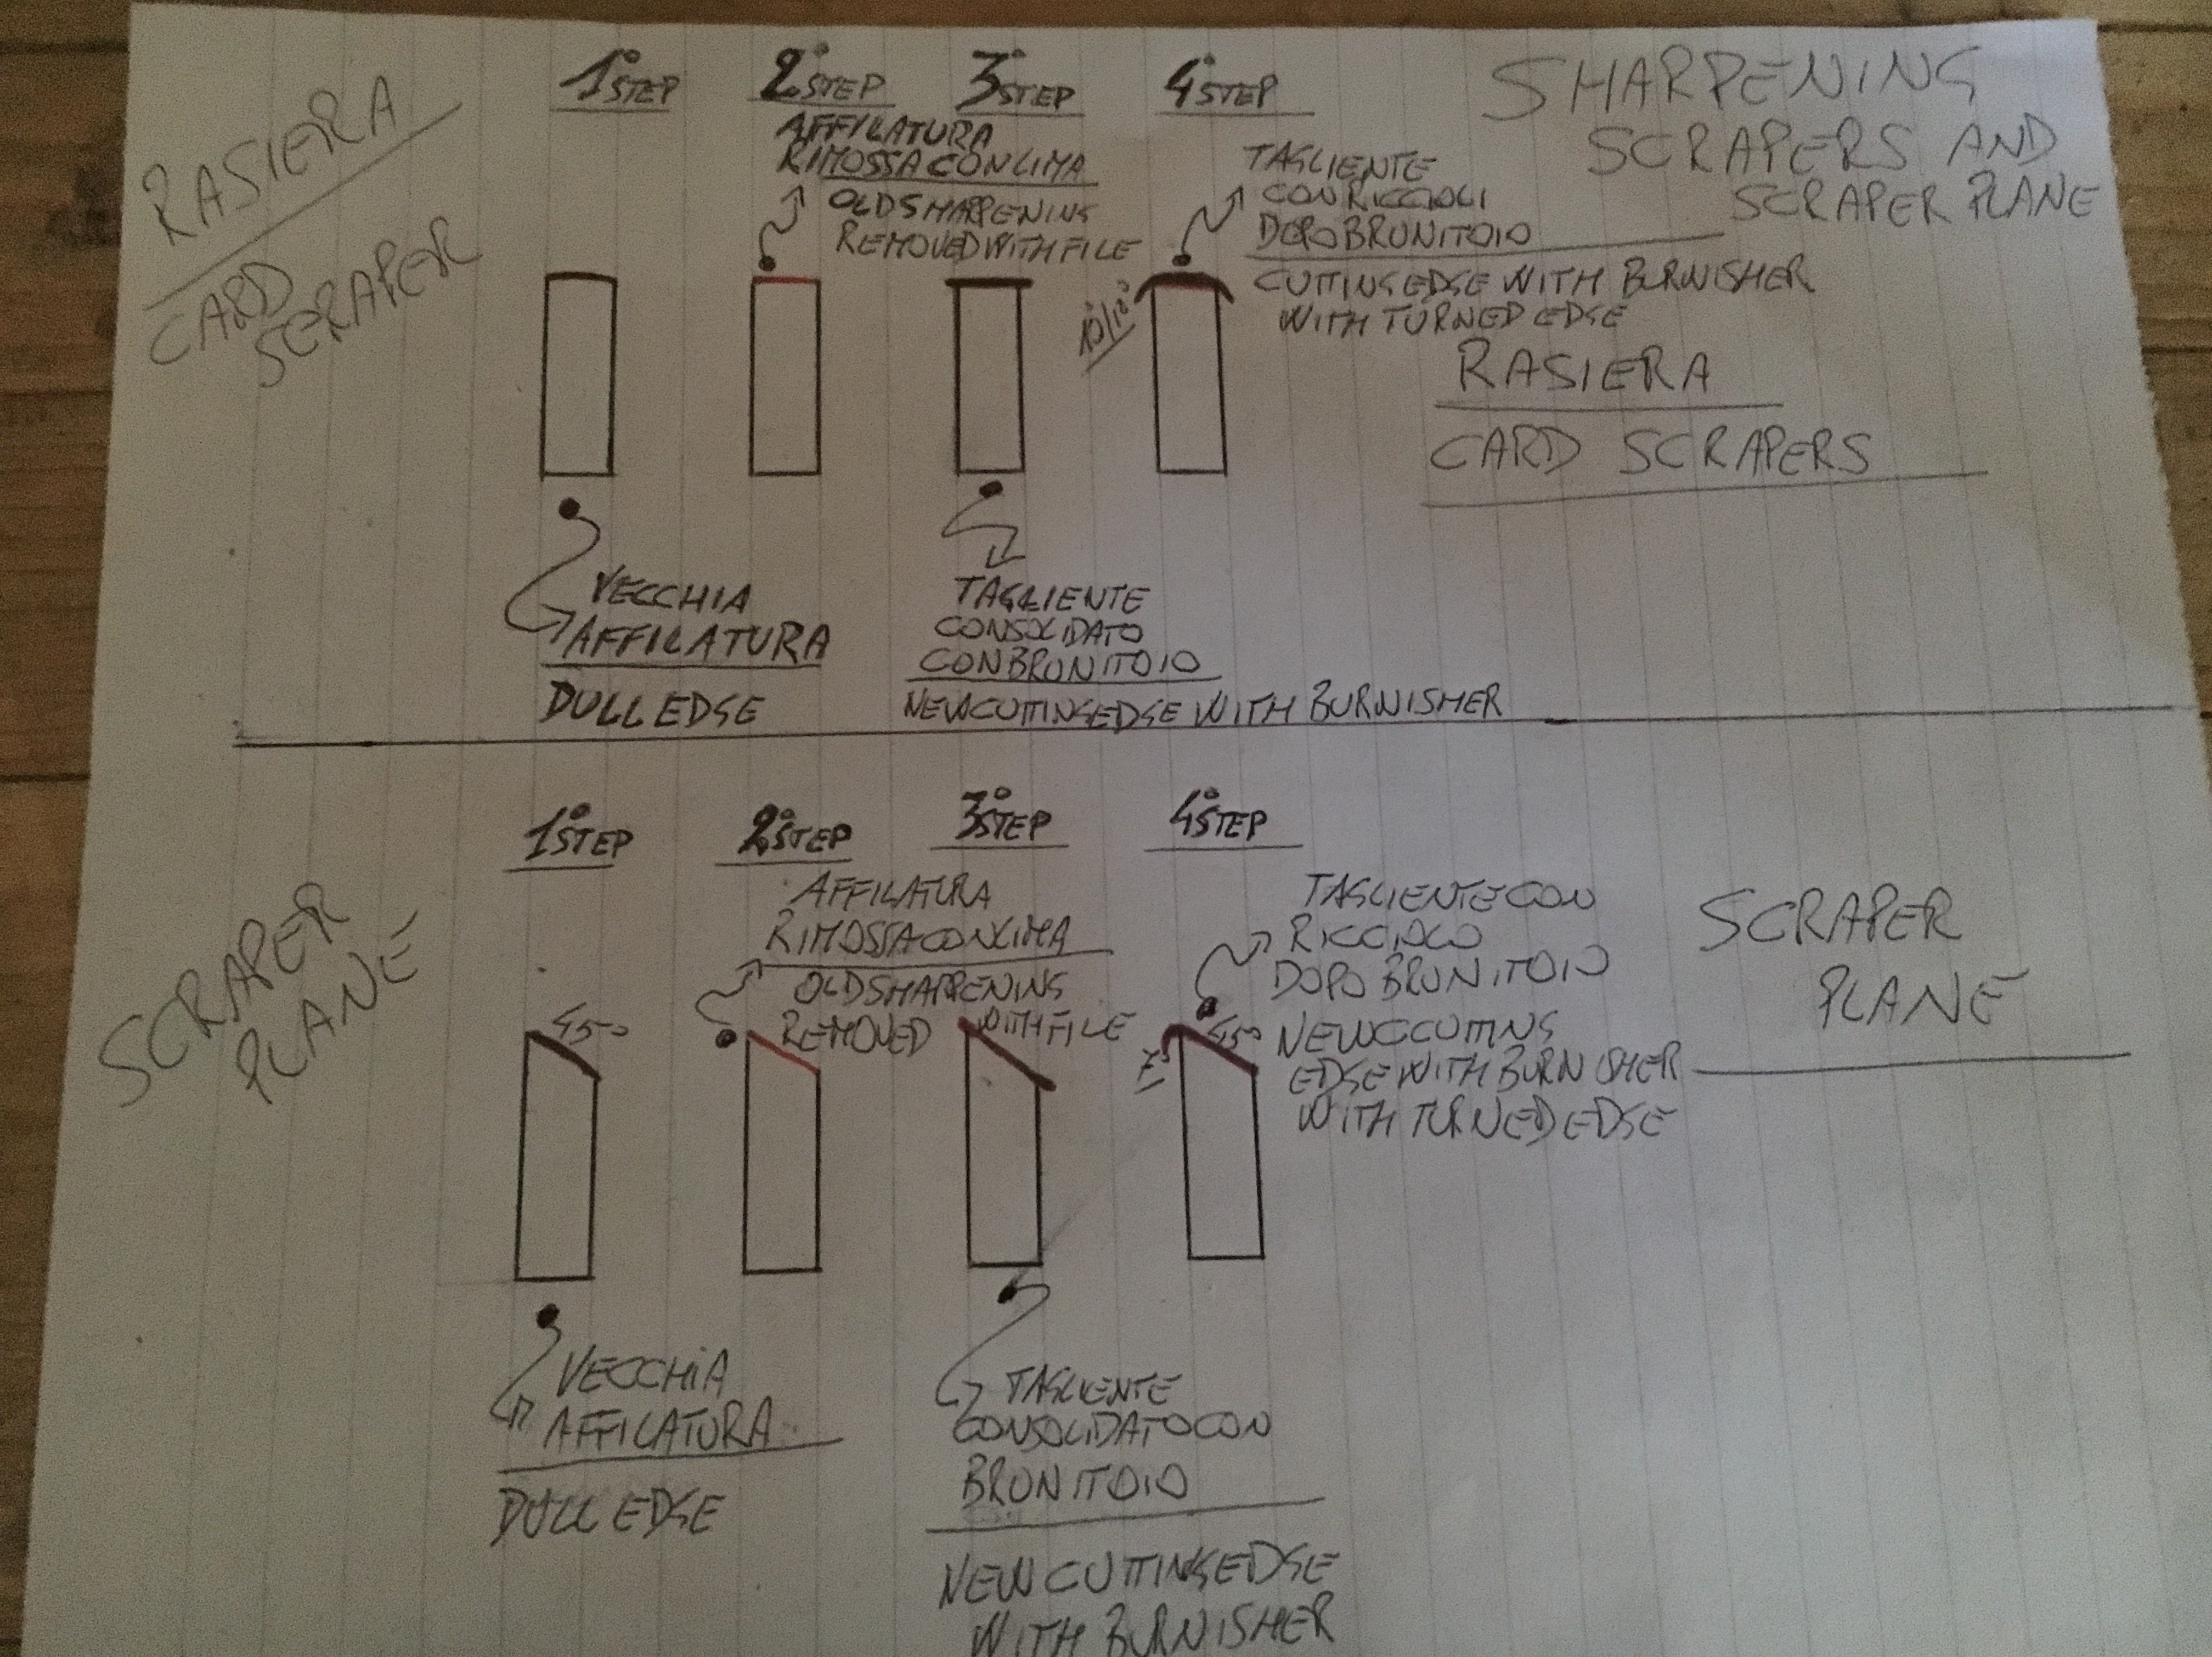 RASIERA
CARD
SCRAPER
SHARPENING
SCRAPERS AND
SCRAPER PLANE
1° STEP
2° STEP
AFFILATURA
RIMOSSA CON LIMA
OLD SHARPENING
REMOVED WITH FILE
3° STEP
4° STEP
TAGLIENTE
CON RICCIOLI
DOPO BRUNITOIO
CUTTING EDGE WITH BURNISHER
WITH TURNED EDGE
RASIERA
CARD SCRAPERS
VECCHIA
AFFILATURA
DULL EDGE
TAGLIENTE
CONSOLIDATO
CON BRUNITOIO
NEW CUTTING EDGE WITH BURNISHER
SCRAPER
PLANE
1° STEP
45°
2° STEP
AFFILATURA
RIMOSSA CON LIMA
OLD SHARPENING
REMOVED WITH FILE
3° STEP
4° STEP
TAGLIENTE CON
RICCIOLO
DOPO BRUNITOIO
45°
NEW CCUTING
EDGE WITH BURNISHER
WITH TURNED EDGE
SCRAPER
PLANE
VECCHIA
AFFILATURA
DULL EDGE
TAGLIENTE
CONSOLIDATO CON
BRUNITOIO
NEW CUTTING EDGE
WITH BURNISHER